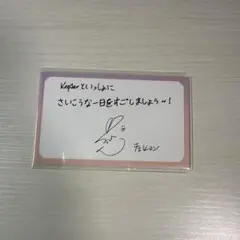 Kep1erといっしょに
さいこうな一日をすごしましょう~!
チェヒョン